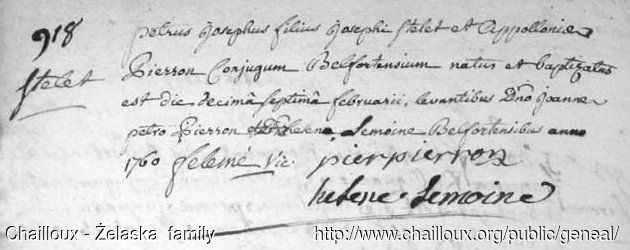 918
Stelet
petrus Josephus filius Josephi Stelet et Appolloniae
Pierron Conjugum Belfortensium natus et baptizatus
est die decimâ septimâ februarii, levantibus Dno Joanne
petro Pierron et helena Lemoine Belfortensibus anno
1760 Vic.
pierpierron
helene Lemoine
Chailloux - Żelaska family http://www.chailloux.org/public/geneal/